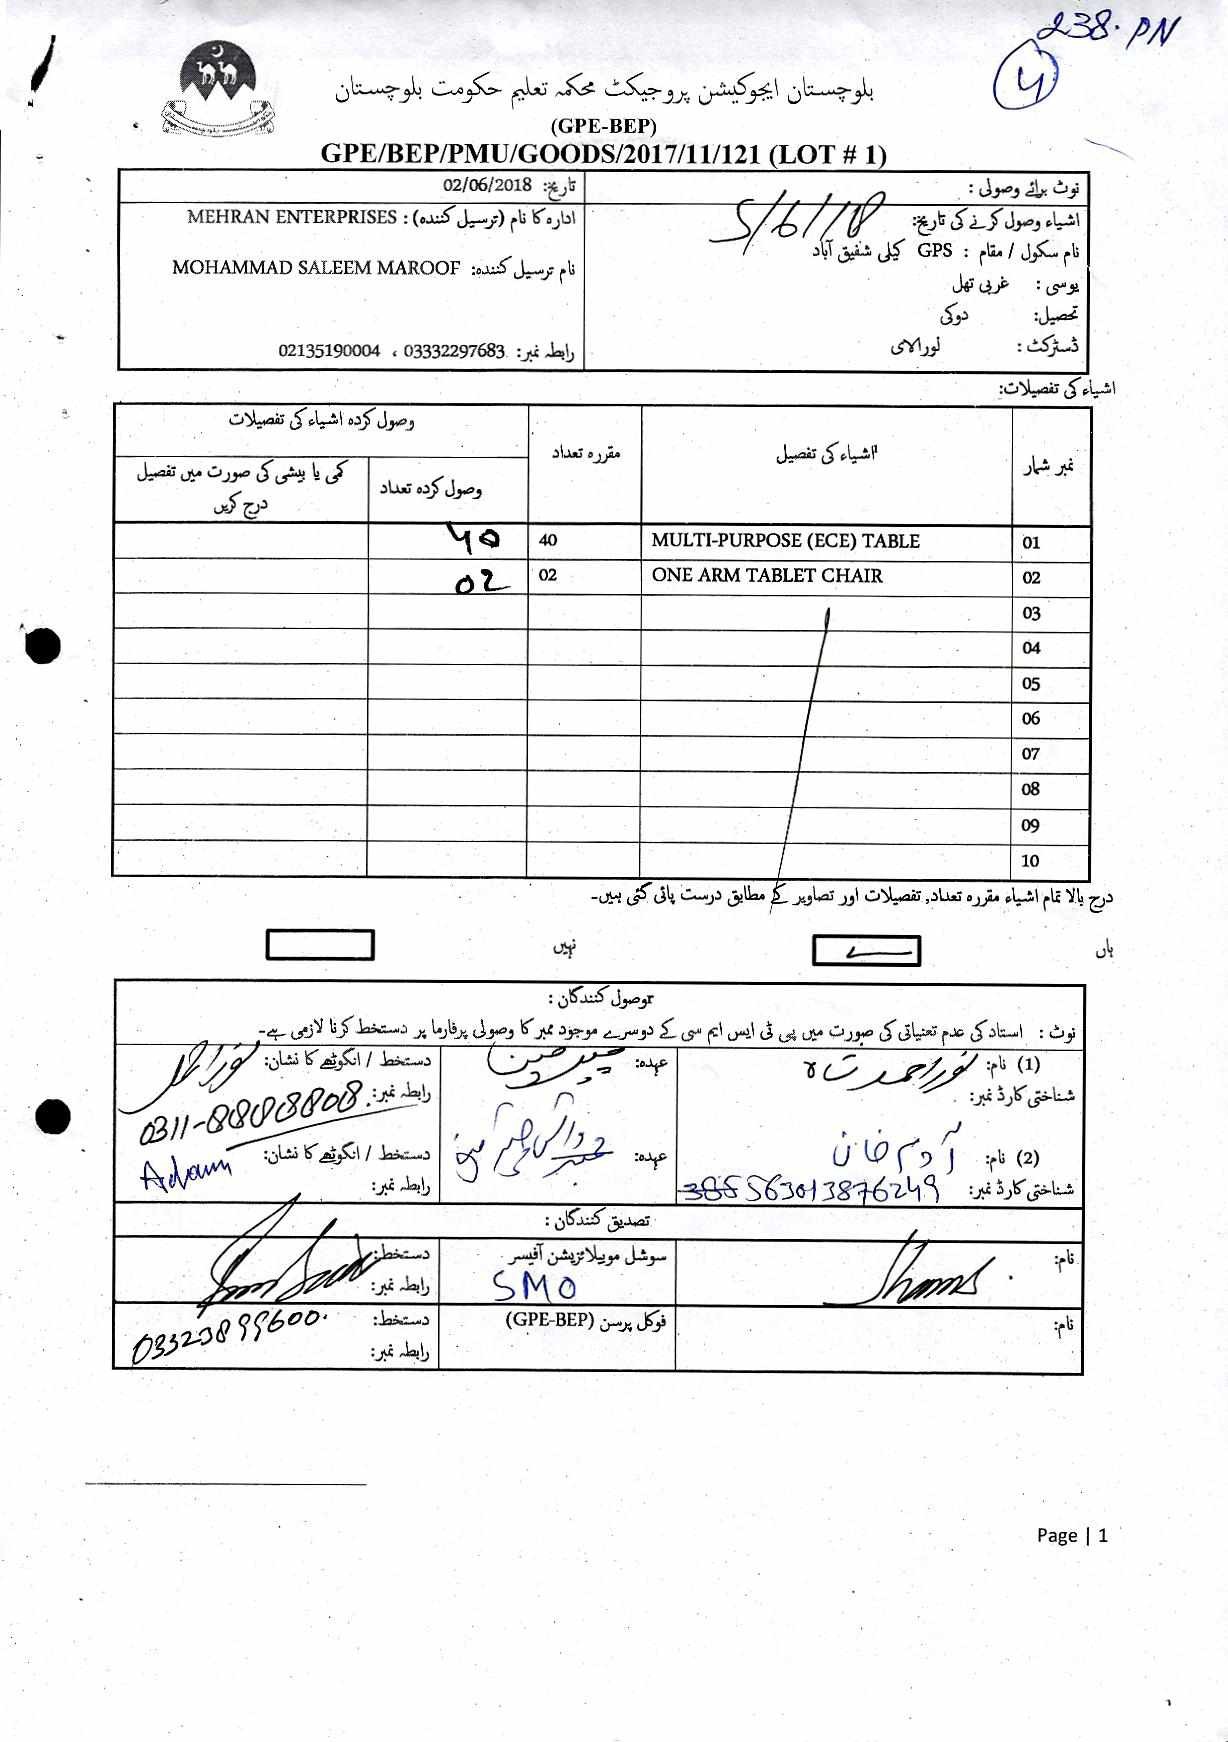 238. PN
4
بلوچستان ایجوکیشن پروجیکٹ محکمہ تعلیم حکومت بلوچستان
(GPE-BEP)
GPE/BEP/PMU/GOODS/2017/11/121 (LOT # 1)
نوٹ برائے وصولی :
اشیاء وصول کرنے کی تاریخ: 5/6/18
نام سکول / مقام : GPS کیلی شفیق آباد
یوسی : غربی تھل
تحصیل: دوکی
ڈسٹرکٹ : لورالائی
تاریخ: 02/06/2018
ادارہ کا نام (ترسیل کنندہ) : MEHRAN ENTERPRISES
نام ترسیل کنندہ: MOHAMMAD SALEEM MAROOF
رابطہ نمبر: 03332297683 ، 02135190004
اشیاء کی تفصیلات:
نمبر شمار اشیاء کی تفصیل مقررہ تعداد وصول کردہ اشیاء کی تفصیلات
وصول کردہ تعداد کمی یا بیشی کی صورت میں تفصیل درج کریں
01 MULTI-PURPOSE (ECE) TABLE 40 40
02 ONE ARM TABLET CHAIR 02 02
03
04
05
06
07
08
09
10
درج بالا تمام اشیاء مقررہ تعداد, تفصیلات اور تصاویر کے مطابق درست پائی گئی ہیں۔
ہاں نہیں
وصول کنندگان :
نوٹ : استاد کی عدم تعیناتی کی صورت میں پی ٹی ایس ایم سی کے دوسرے موجود ممبر کا وصولی پرفارما پر دستخط کرنا لازمی ہے۔
(1) نام: نور احمد شاہ عہدہ: چیرمین دستخط / انگوٹھے کا نشان:
شناختی کارڈ نمبر: رابطہ نمبر: 0311-8808808
(2) نام: آدم خان عہدہ: دستخط / انگوٹھے کا نشان: Adam
شناختی کارڈ نمبر: 563013876249 رابطہ نمبر:
تصدیق کنندگان :
نام: Shams سوشل موبیلائزیشن آفیسر دستخط:
SMO رابطہ نمبر:
نام: فوکل پرسن (GPE-BEP) دستخط:
03323899600 رابطہ نمبر:
Page | 1